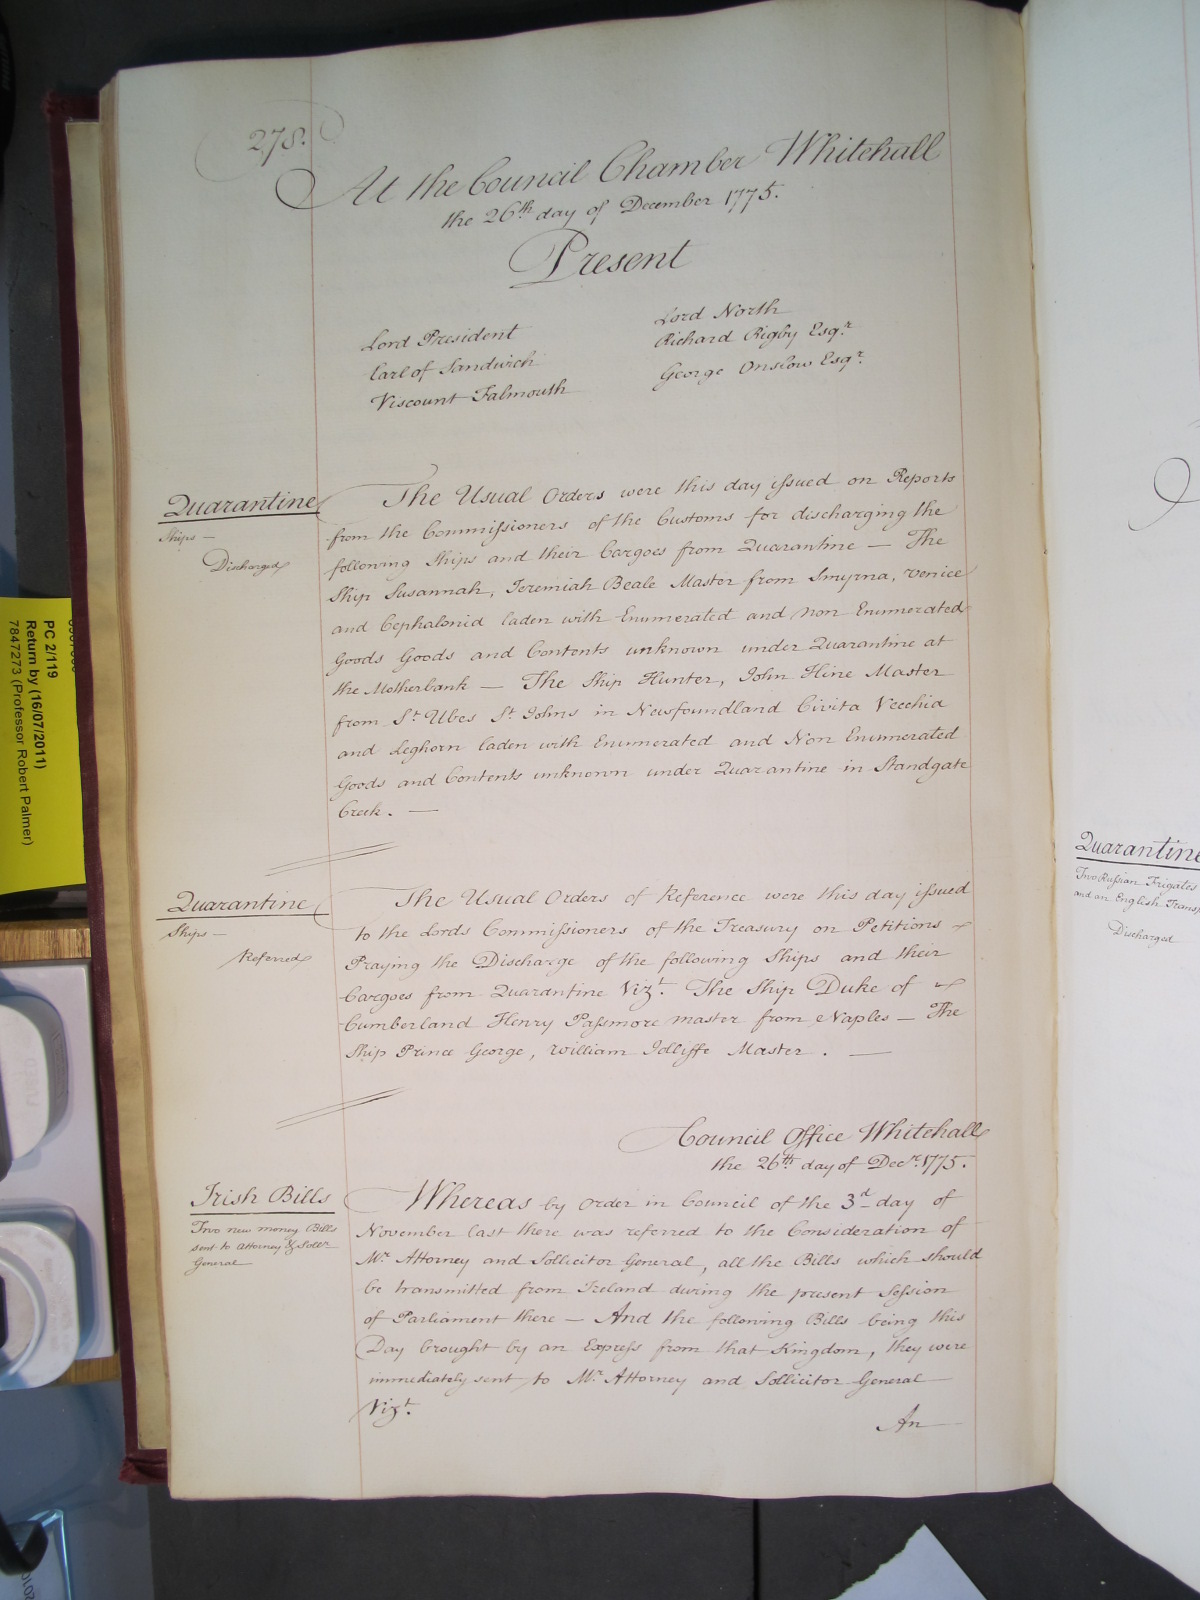 278.
At the Council Chamber Whitehall
the 26th day of December 1775.
Present
Lord President
Earl of Sandwich
Viscount Falmouth
Lord North
Richard Rigby Esqr
George Onslow Esqr
Quarantine
Ships —
Discharged
The Usual Orders were this day issued on Reports
from the Commissioners of the Customs for discharging the
following Ships and their Cargoes from Quarantine — The
Ship Susannah, Jeremiah Beale Master from Smyrna, Venice
and Cephalonia laden with Enumerated and non Enumerated
Goods Goods and Contents unknown under Quarantine at
the Motherbank — The Ship Hunter, John Hine Master
from St Ubes St Johns in Newfoundland Civita Vecchia
and Leghorn laden with Enumerated and Non Enumerated
Goods and Contents unknown under Quarantine in Standgate
Creek. —
Quarantine
Ships —
Referred
The Usual Orders of Reference were this day issued
to the Lords Commissioners of the Treasury on Petitions
Praying the Discharge of the following Ships and their
Cargoes from Quarantine Vizt. The Ship Duke of
Cumberland Henry Passmore master from Naples — The
Ship Prince George, William Jolliffe Master. —
Council Office Whitehall
the 26th day of Decr. 1775.
Irish Bills
Two new money Bills
sent to Attorney & Sollr
General
Whereas by Order in Council of the 3d day of
November last there was referred to the Consideration of
Mr Attorney and Sollicitor General, all the Bills which should
be transmitted from Ireland during the present Session
of Parliament there — And the following Bills being this
Day brought by an Express from that Kingdom, they were
immediately sent to Mr Attorney and Sollicitor General
Vizt.
An
PC 2/119
Return by (16/07/2011)
7847273 (Professor Robert Palmer)
Quarantine
Two Russian Frigates
and an English
Discharged